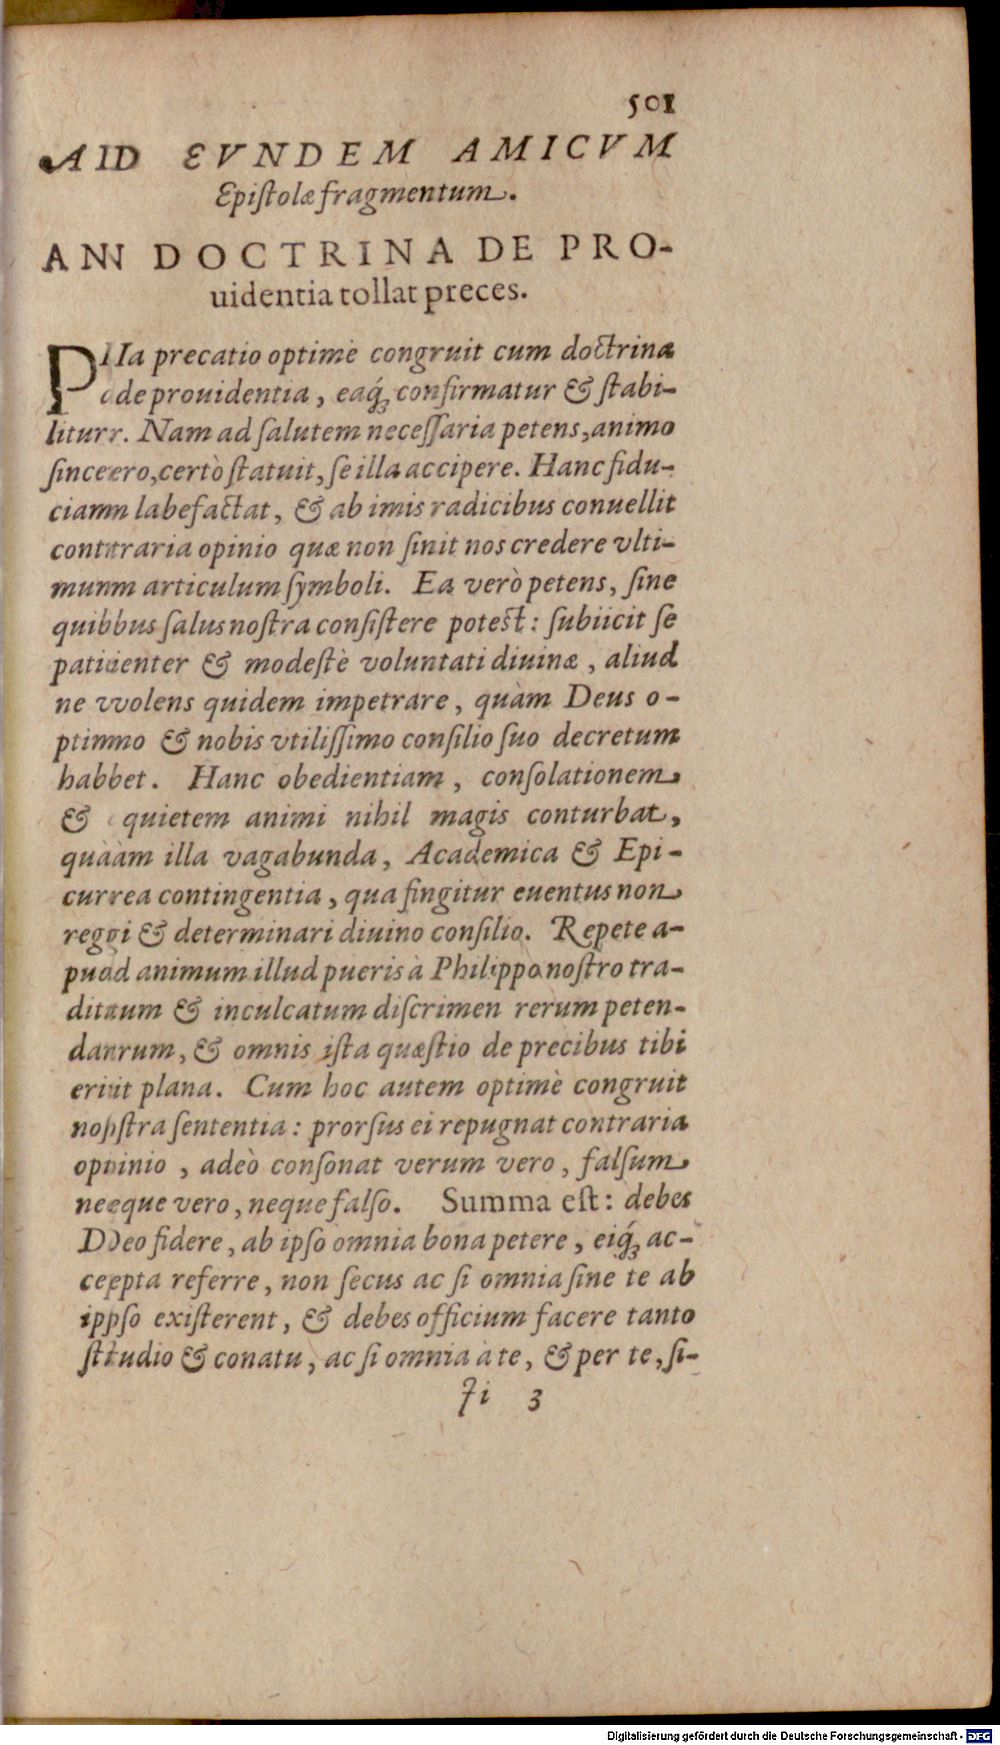 501
AD EVNDEM AMICVM
Epistolæ fragmentum.
AN DOCTRINA DE PRO-
uidentia tollat preces.
PIa precatio optimè congruit cum doctrina
de prouidentia, eaq́; confirmatur & stabi-
litur. Nam ad salutem necessaria petens, animo
sincero, certò statuit, se illa accipere. Hanc fidu-
ciam labefactat, & ab imis radicibus conuellit
contraria opinio quæ non sinit nos credere vlti-
mum articulum symboli. Ea verò petens, sine
quibus salus nostra consistere potest: subiicit se
patienter & modestè voluntati diuinæ, aliud
ne volens quidem impetrare, quàm Deus o-
ptimo & nobis vtilissimo consilio suo decretum
habet. Hanc obedientiam, consolationem
& quietem animi nihil magis conturbat,
quàm illa vagabunda, Academica & Epi-
curea contingentia, qua fingitur euentus non
regi & determinari diuino consilio. Repete a-
pud animum illud pueris à Philippo nostro tra-
ditum & inculcatum discrimen rerum peten-
darum, & omnis ista quæstio de precibus tibi
erit plana. Cum hoc autem optimè congruit
nostra sententia: prorsus ei repugnat contraria
opinio, adeò consonat verum vero, falsum
neque vero, neque falso. Summa est: debes
Deo fidere, ab ipso omnia bona petere, eiq́; ac-
cepta referre, non secus ac si omnia sine te ab
ipso existerent, & debes officium facere tanto
studio & conatu, ac si omnia à te, & per te, si-
Ii 3
Digitalisierung gefördert durch die Deutsche Forschungsgemeinschaft - DFG